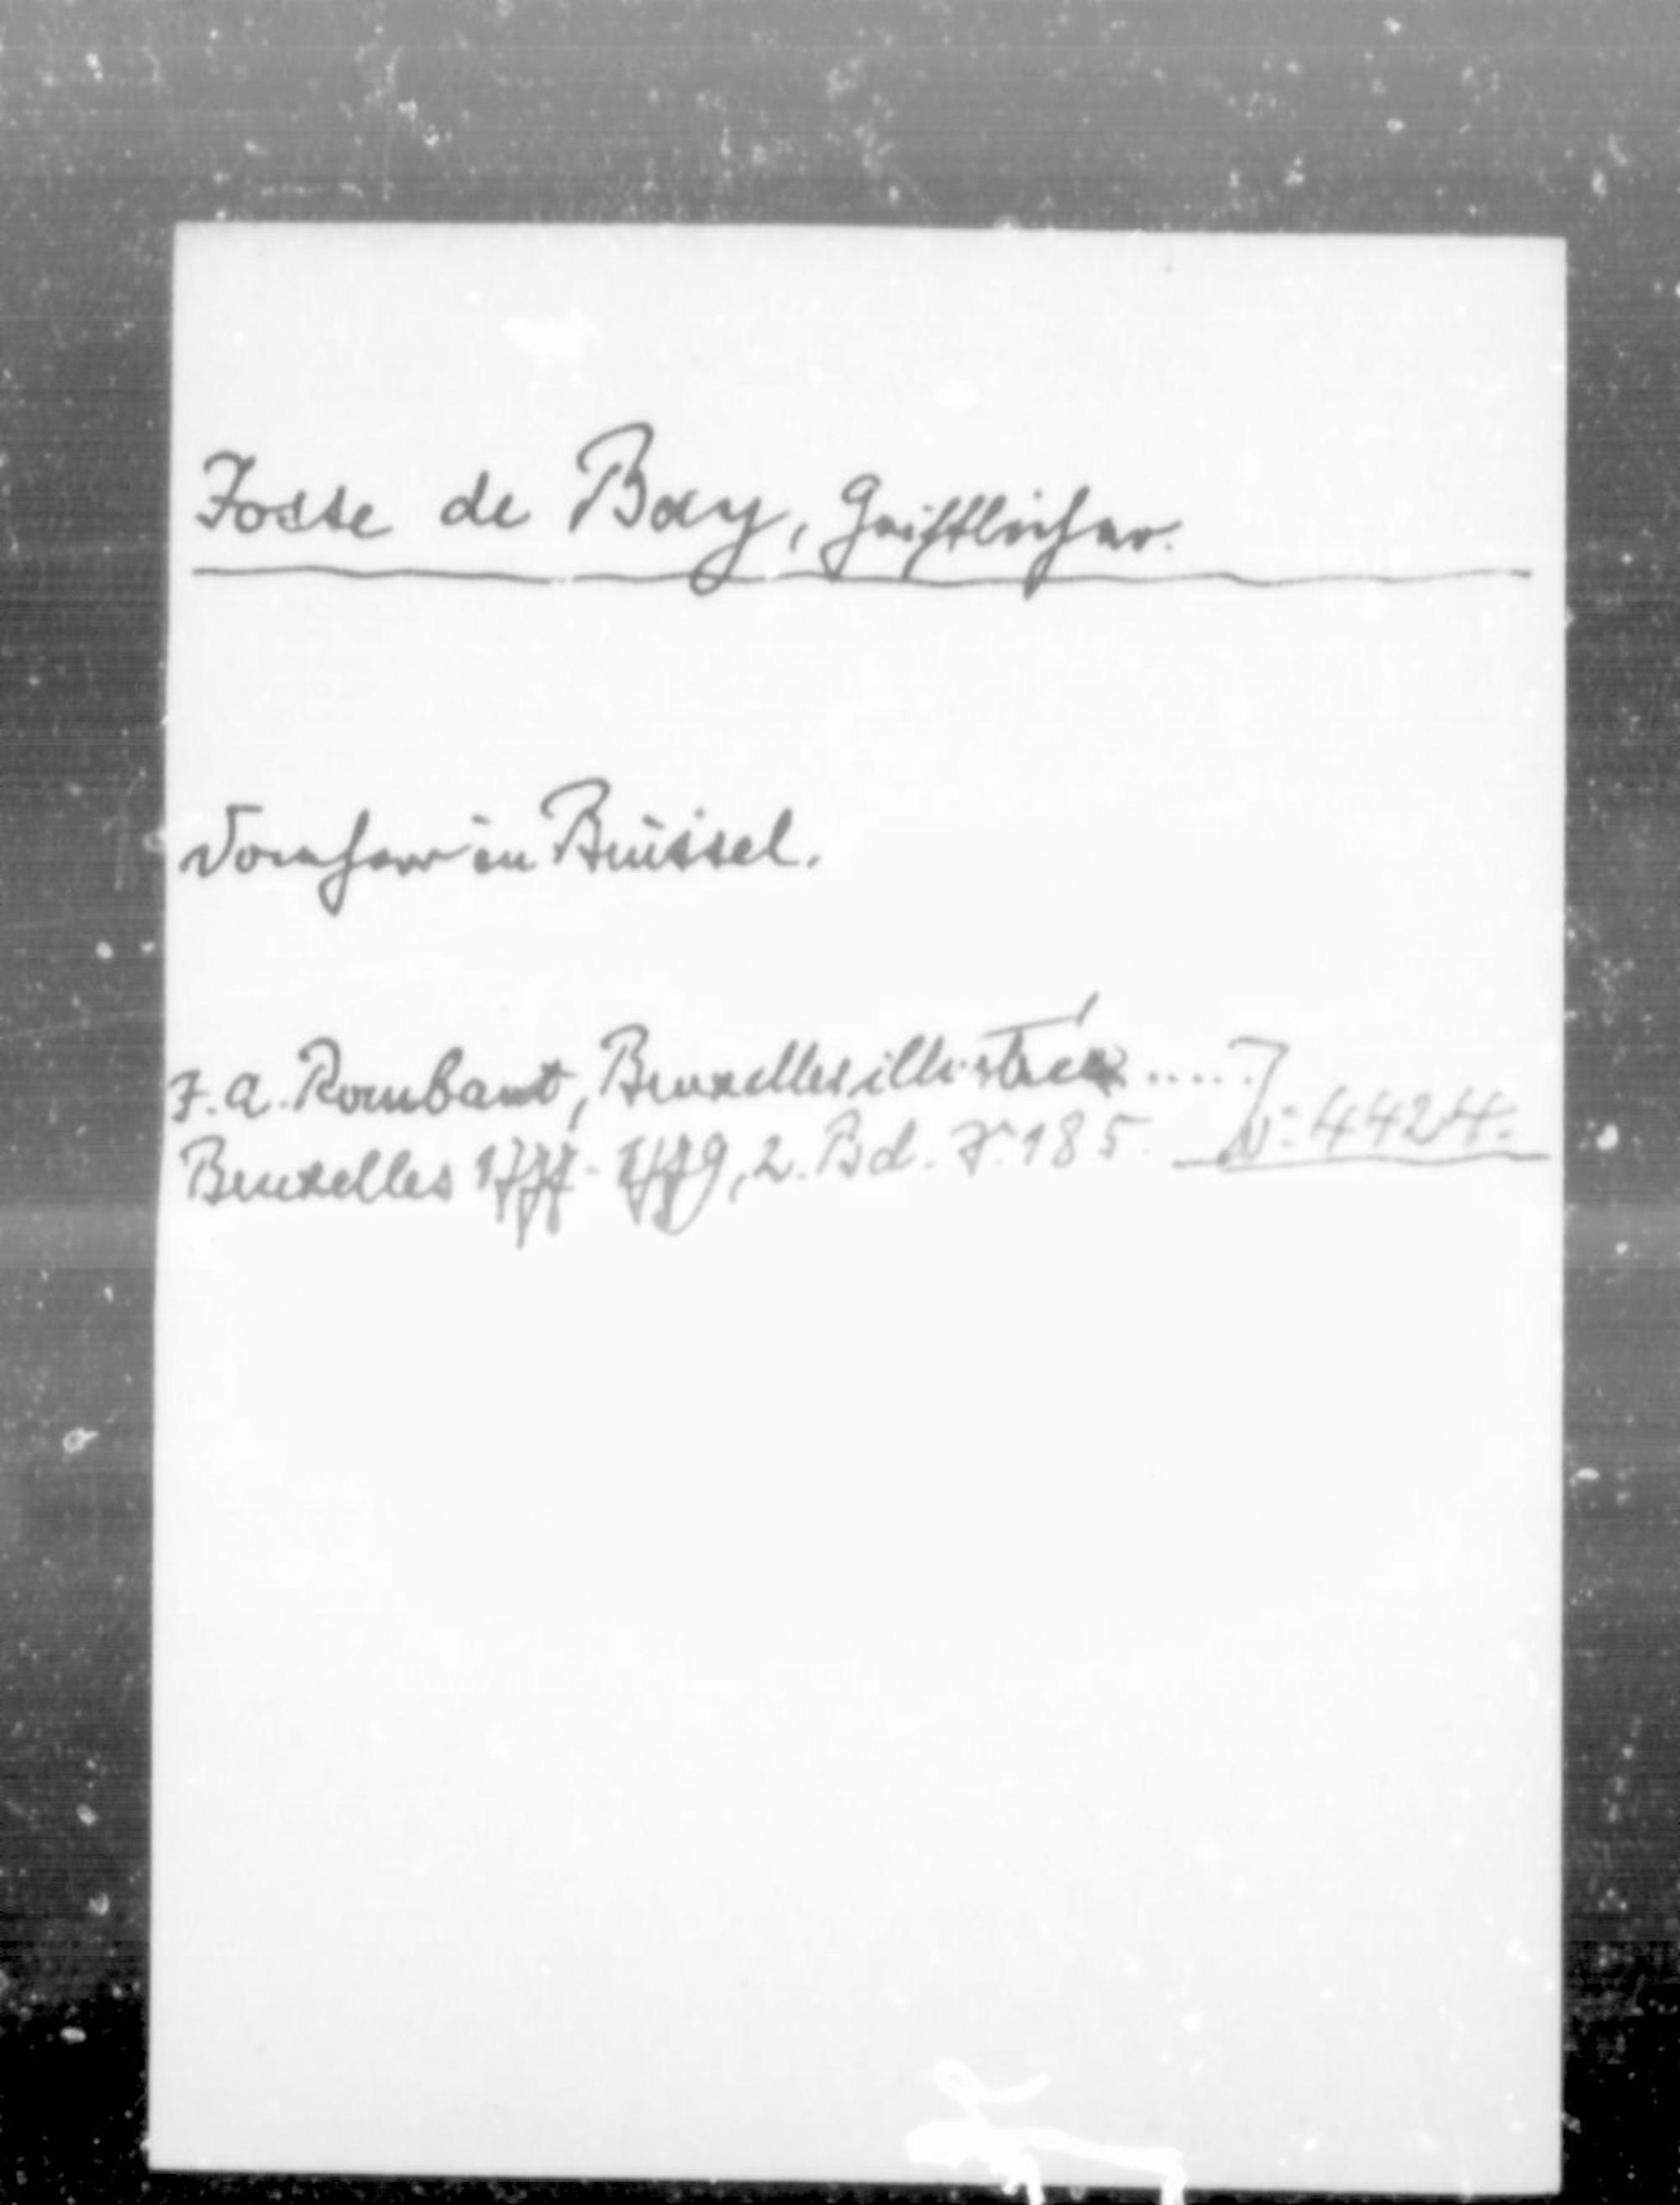 Josse de Bay, Geistlicher.
Domherr in Brüssel.
J. A. Rombaut, Bruxelles illustrée .....
Bruxelles 1777-1779, 2. Bd. S. 185. N: 4424.